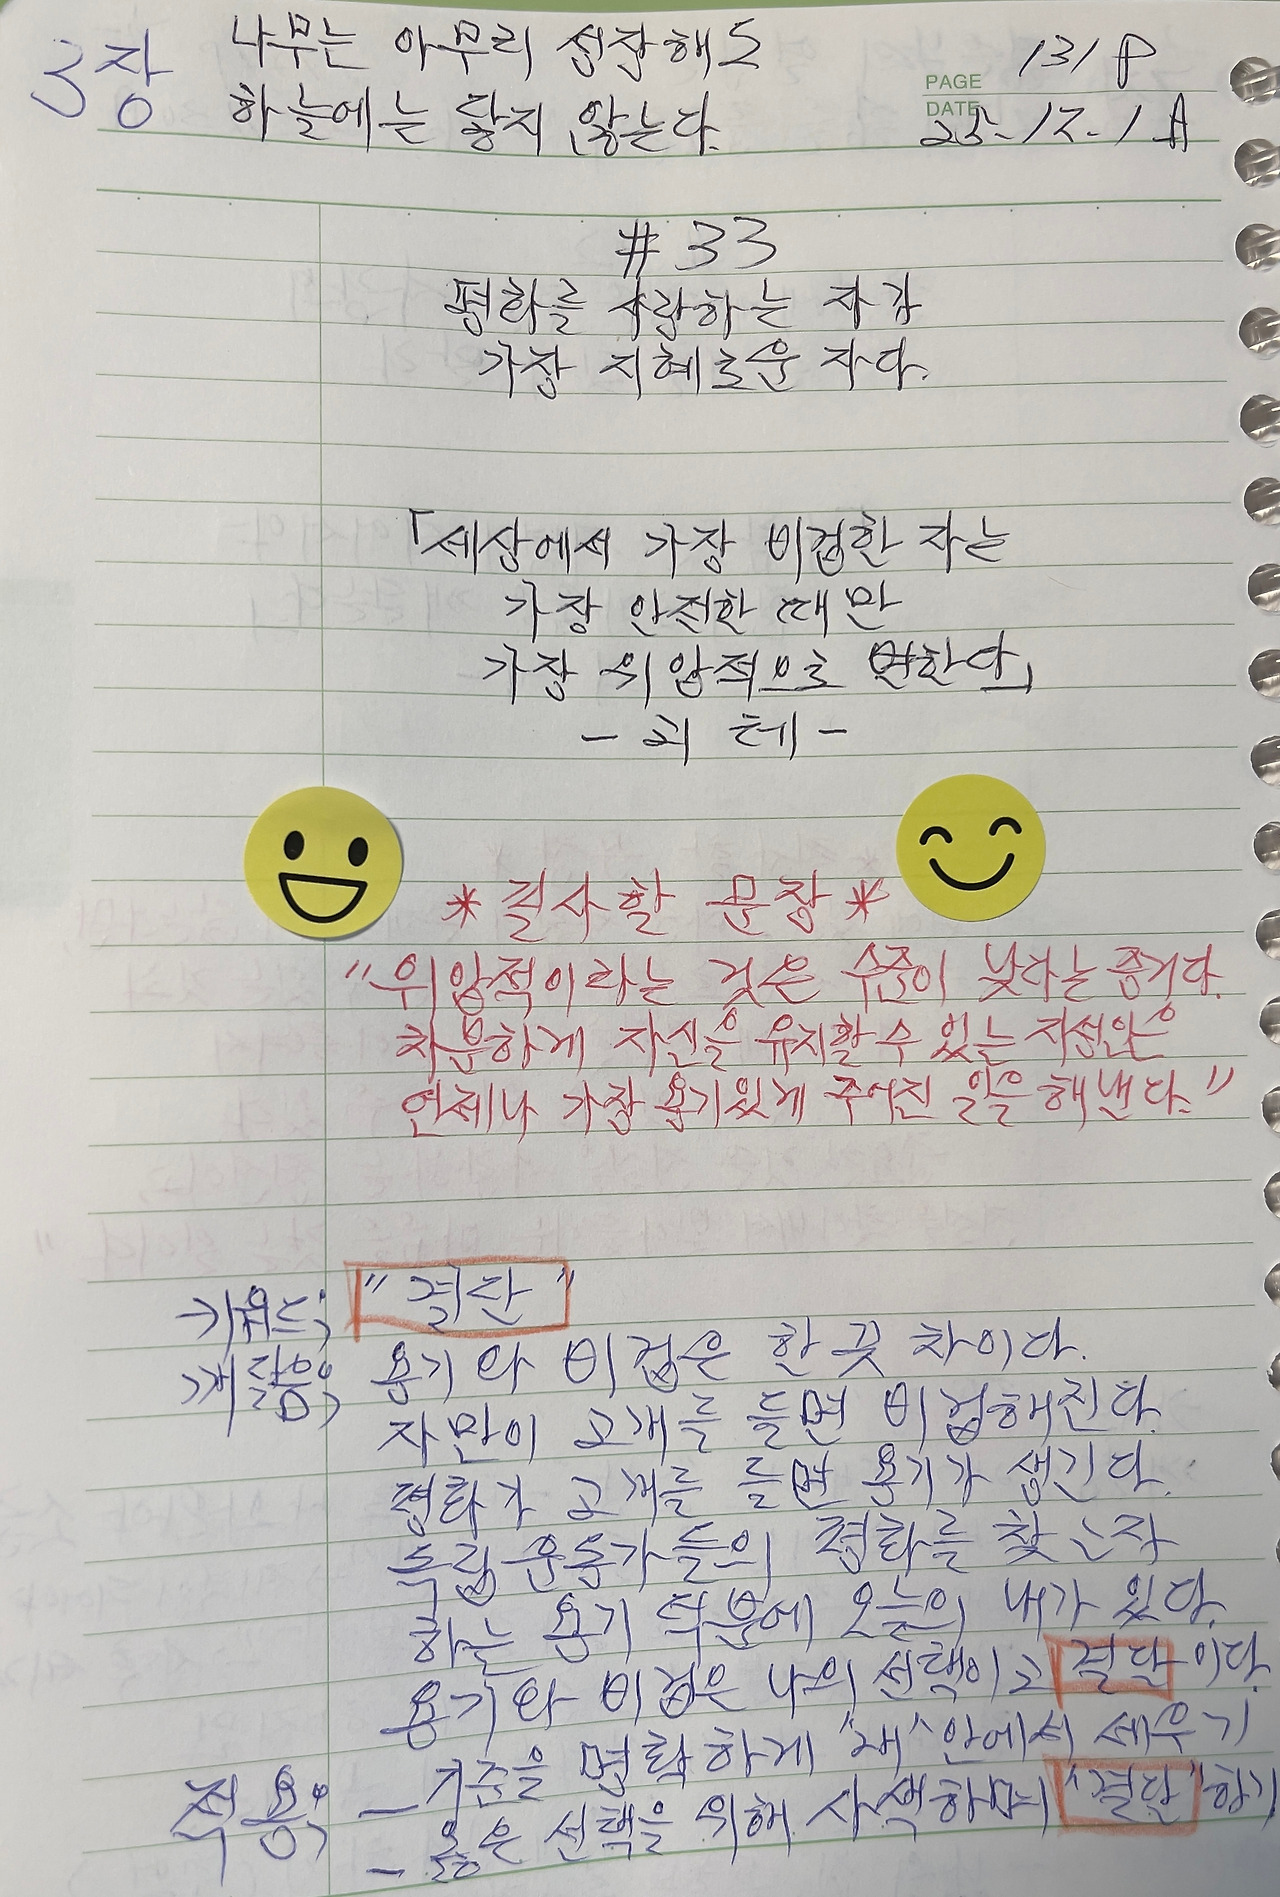 3장
나무는 아무리 성장해도
하늘에는 닿지 않는다.
PAGE 131 P
DATE 25-12-1 月
#33
평화를 사랑하는 자가
가장 지혜로운 자다.
「세상에서 가장 비겁한 자는
가장 안전한 때만
가장 위압적으로 변한다」
- 괴테 -
* 필사할 문장 *
"위압적이라는 것은 수준이 낮다는 증거다.
차분하게 자신을 유지할 수 있는 지성인은
언제나 가장 용기있게 주어진 일을 해낸다."
키워드; "결단"
깨달음; 용기와 비겁은 한 끗 차이다.
자만이 고개를 들면 비겁해진다.
평화가 고개를 들면 용기가 생긴다.
독립운동가들의 평화를 찾고자
하는 용기 덕분에 오늘의 내가 있다.
용기와 비겁은 나의 선택이고 결단이다.
적용; - 기준을 명확하게 "내" 안에서 세우기
- 옳은 선택을 위해 사색하며 "결단"하기